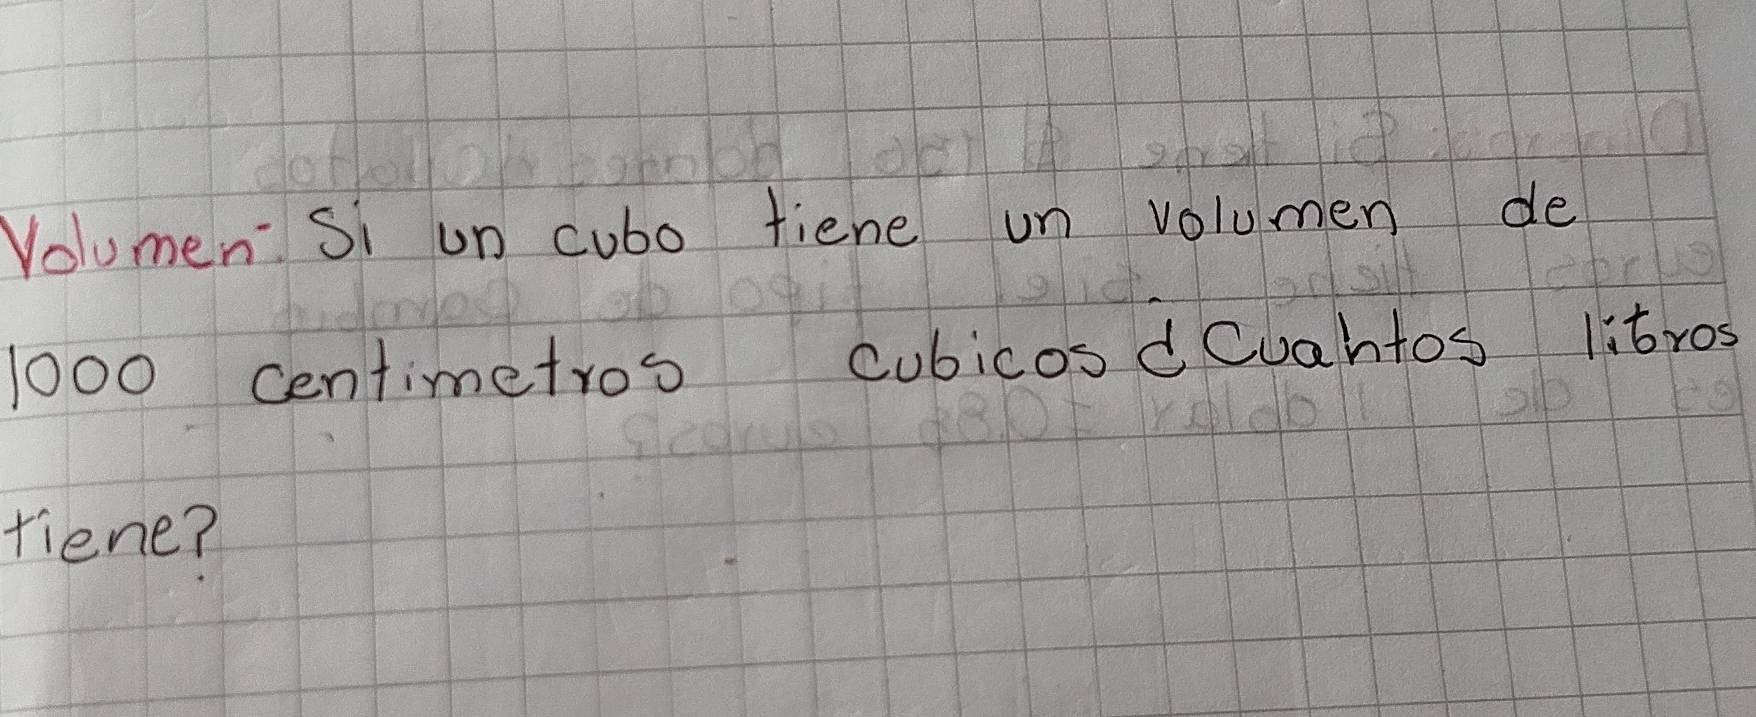 Volumen: Si un cubo tiene un volumen de
1000 centimetros cubicos ¿Cuantos litros
tiene?